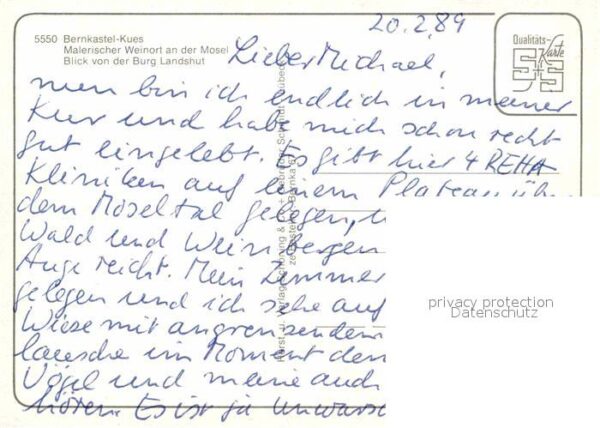 20.2.89
5550 Bernkastel-Kues
Malerischer Weinort an der Mosel
Blick von der Burg Landshut
Qualitäts-Karte
Lieber Michael,
nun bin ich endlich in meiner
Kur und habe mich schon recht
gut eingelebt. Es gibt hier 4 REHA
Kliniken auf einem Plateau üb
dem Moseltal gelegen,
Wald und Weinbergen
Auge reicht. Mein Zimmer
gelegen und ich sehe auf
Wiese mit angrenzendem
lausche im Moment den
Vögel und meine auch
hören. Es ist ja unwarsc
privacy protection
Datenschutz